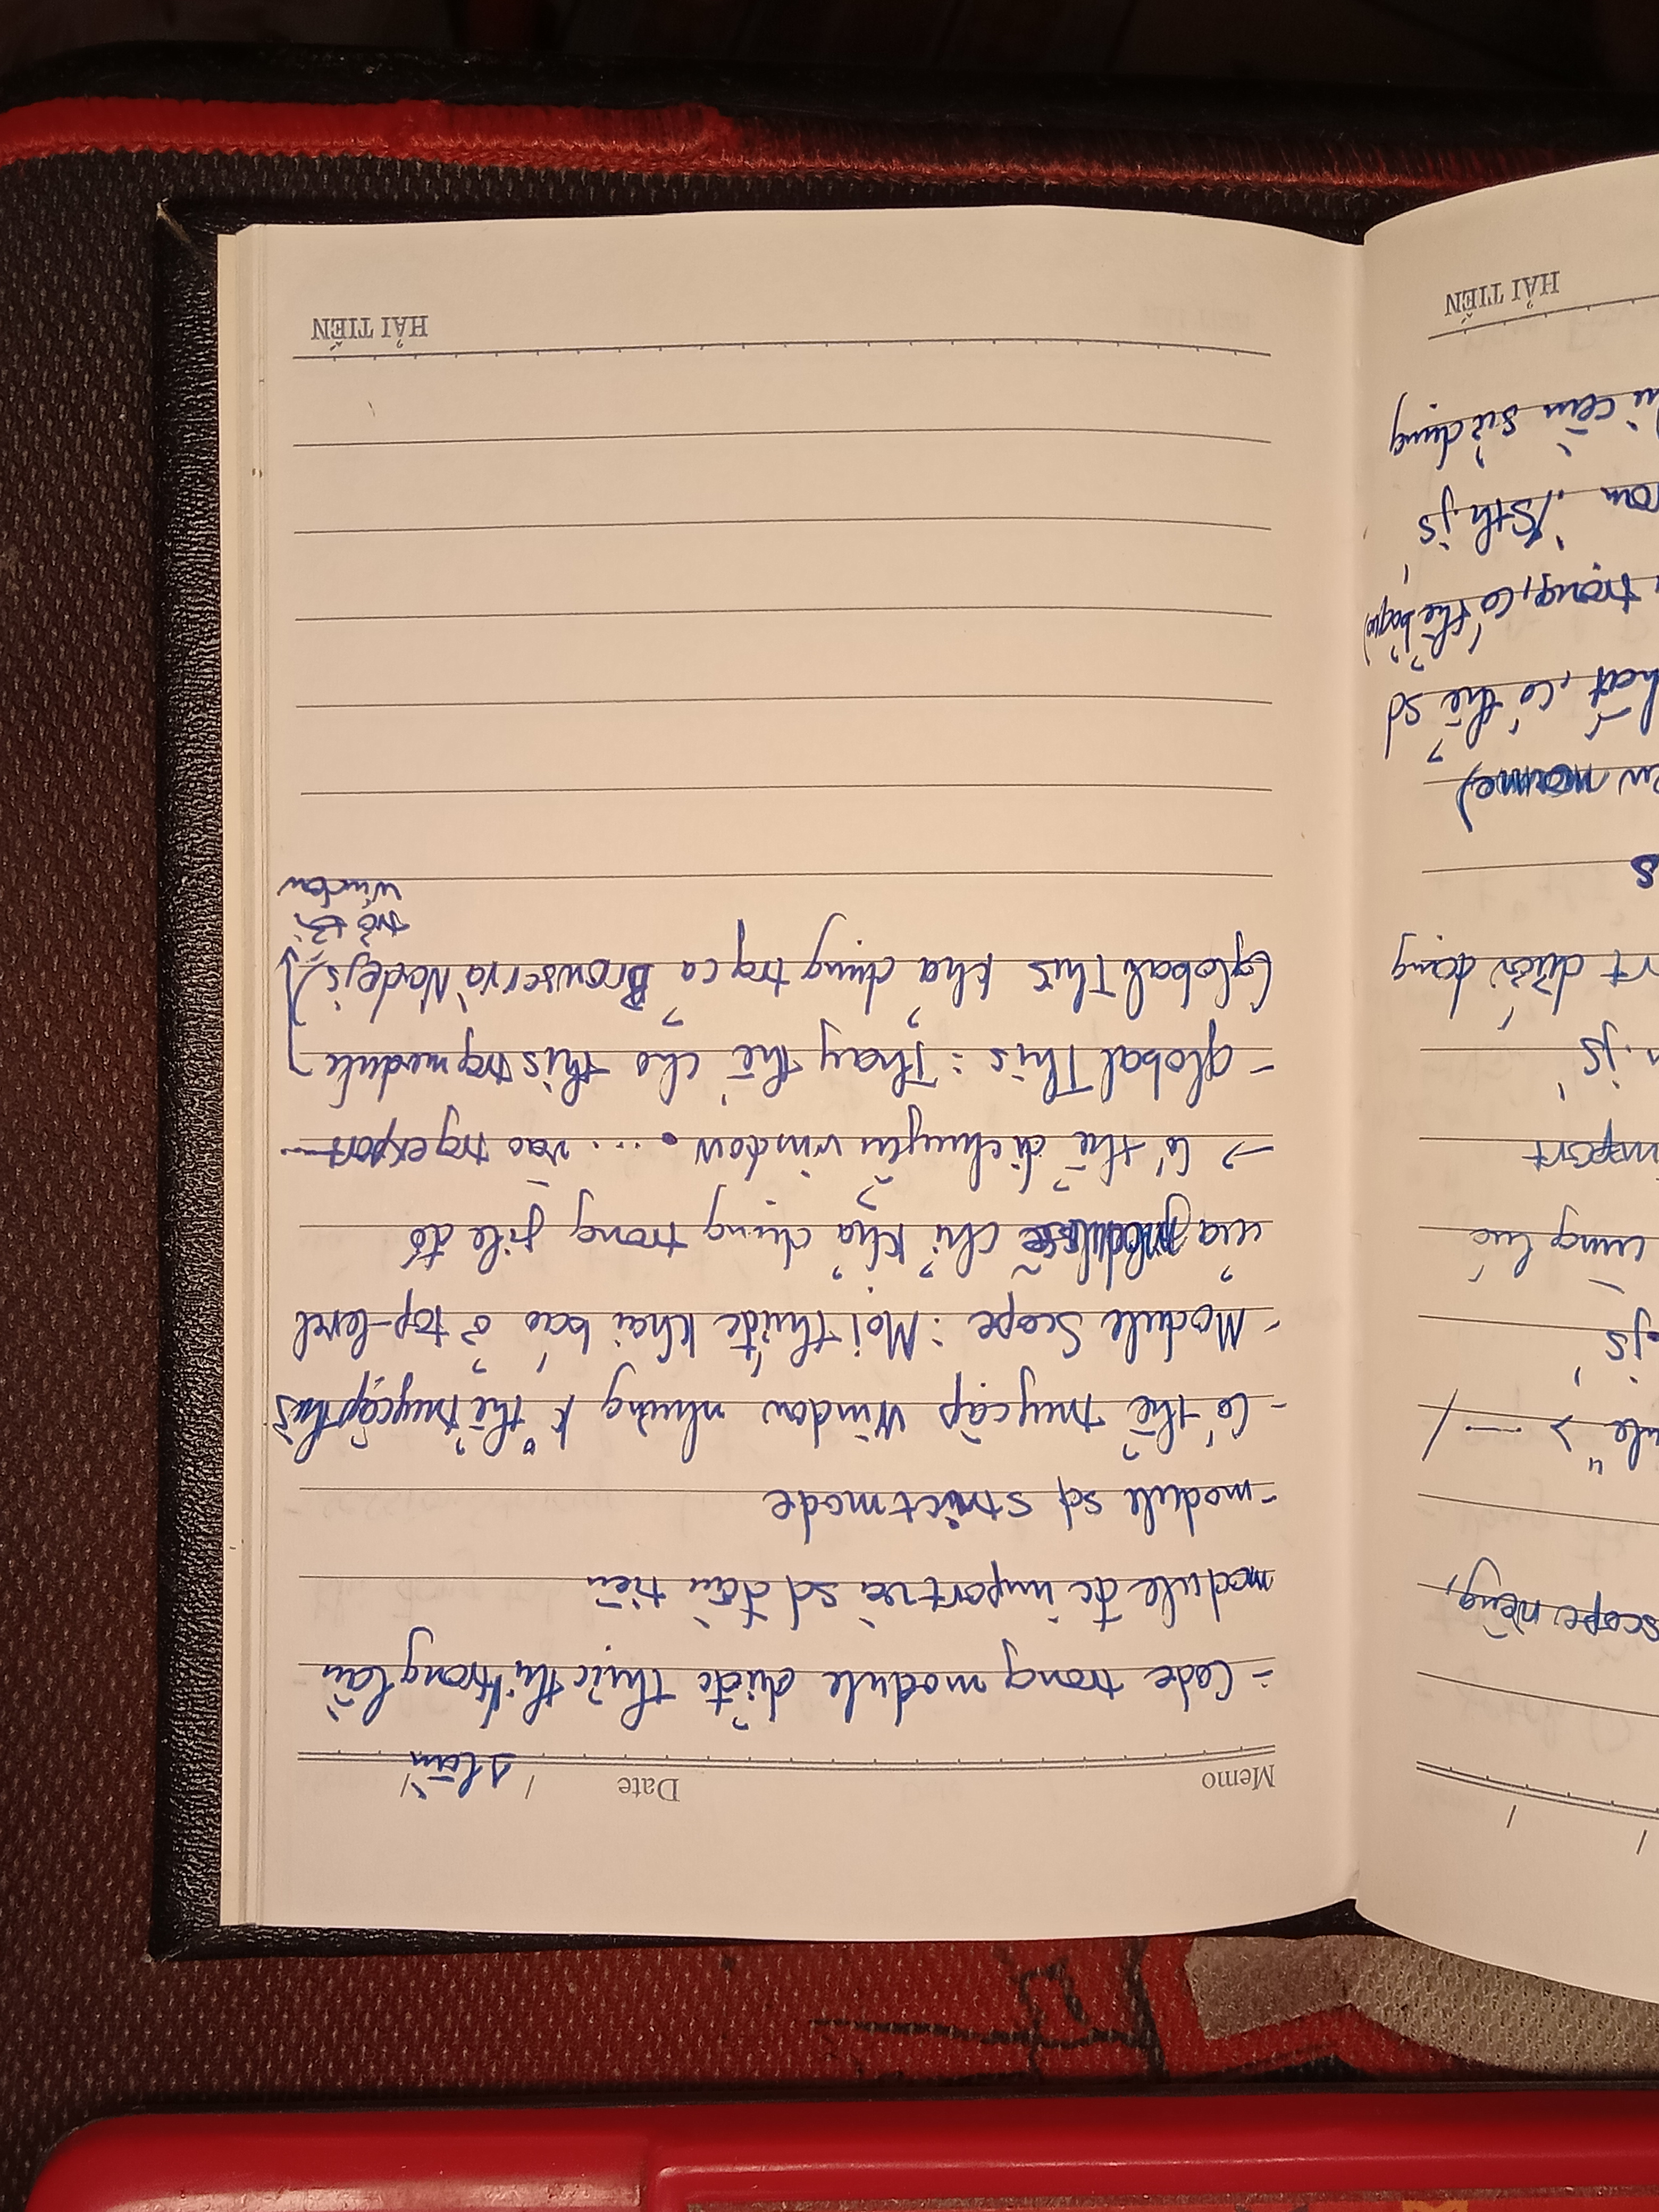 / /
scope riêng,
ule"> — /
.js'
cùng lúc
import
.js'
rt dưới dạng
s
ew name)
hất, có thể sd
trọng, có thể bỏ qua)
rom './sth.js'
cần sử dụng
HẢI TIẾN
Memo Date / /
1 lần
- Code trong module được thực thi trong lần
module đc import và sd đầu tiên
- module sd strict mode
- Có thể truy cập window nhưng k° thể truy cập this
- Module Scope : Mọi thứ đc khai báo ở top-level
của module sẽ chỉ khả dụng trong file đó
→ Có thể di chuyển window. ... vào trg export ...
- globalThis : Thay thế cho this trg module
(globalThis khả dụng trg cả Browser và Nodejs)
trỏ tới
window
HẢI TIẾN